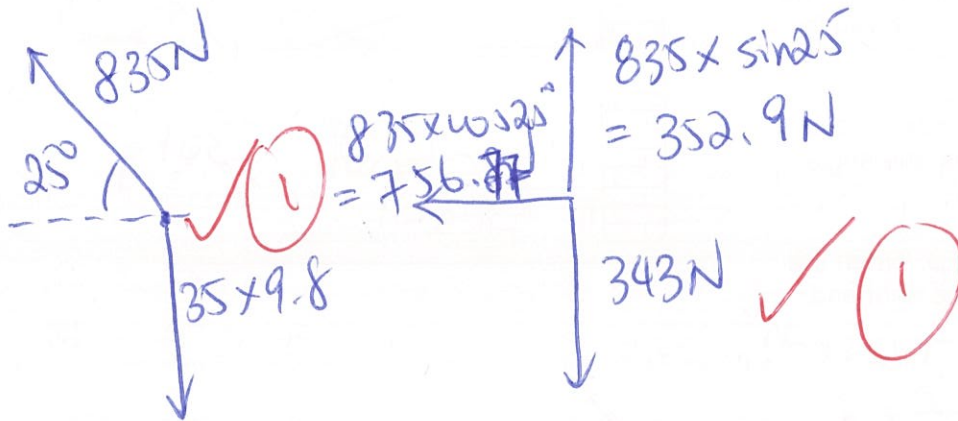 835N
25°
35×9.8
1
835×cos25°
= 756.77
835×sin25
= 352.9N
343N
1